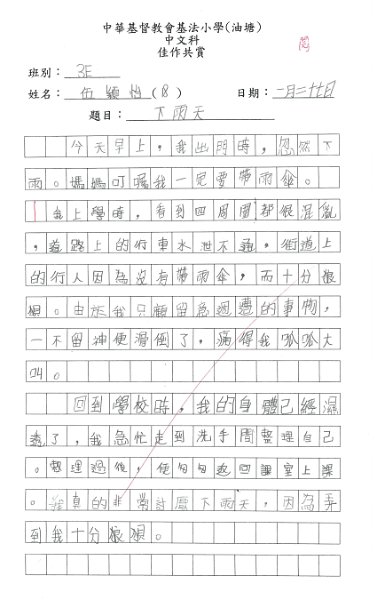 中華基督教會基法小學(油塘)
中文科
佳作共賞
閱
班別： 3E
姓名： 伍穎怡(8) 日期： 二月二十七日
題目： 下雨天
今天早上，我出門時，忽然下
雨。媽媽叮囑我一定要帶雨傘。
我上學時，看到四周圍都很混亂
，道路上的行車水泄不通，街道上
的行人因為沒有帶雨傘，而十分狼
狽。由於我只顧留意週遭的事物，
一不留神便滑倒了，痛得我呱呱大
叫。
回到學校時，我的身體已經濕
透了，我急忙走到洗手間整理自己
。整理過後，便匆匆返回課室上課
。我真的非常討厭下雨天，因為弄
到我十分狼狽。